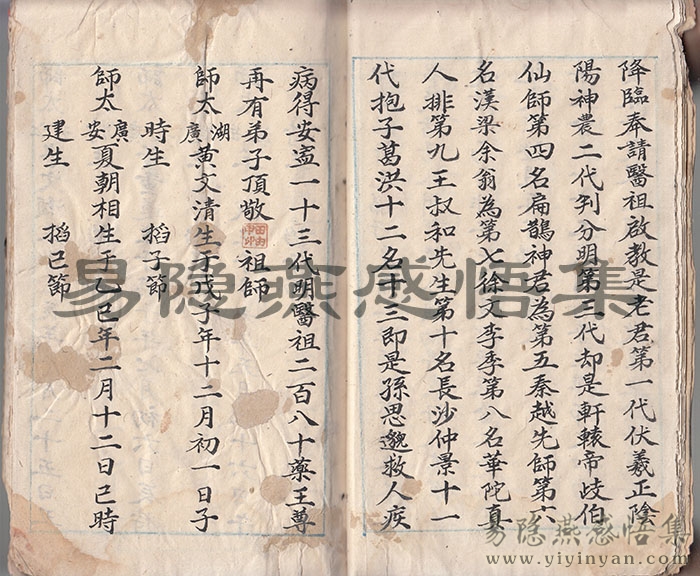 降臨奉請醫祖啟教是老君第一代伏羲正陰
陽神農二代判分明第三代却是軒轅帝歧伯
仙師第四名扁鵲神君為第五秦越先師第六
名漢梁余翁為第七徐文李季第八名華陀真
人排第九王叔和先生第十名長沙仲景十一
代抱子葛洪十二名十三即是孫思邈救人疾
病得安盍一十三代明醫祖二百八十藥王尊
再有弟子頂敬 祖師
師太 湖廣 黃文清生于戊子年十二月初一日子
時生 搯子節
師太 廣安 夏朝相生于乙巳年二月十二日巳時
建生 搯巳節
易隐燕感悟集
易隐燕感悟集
www.yiyinyan.com